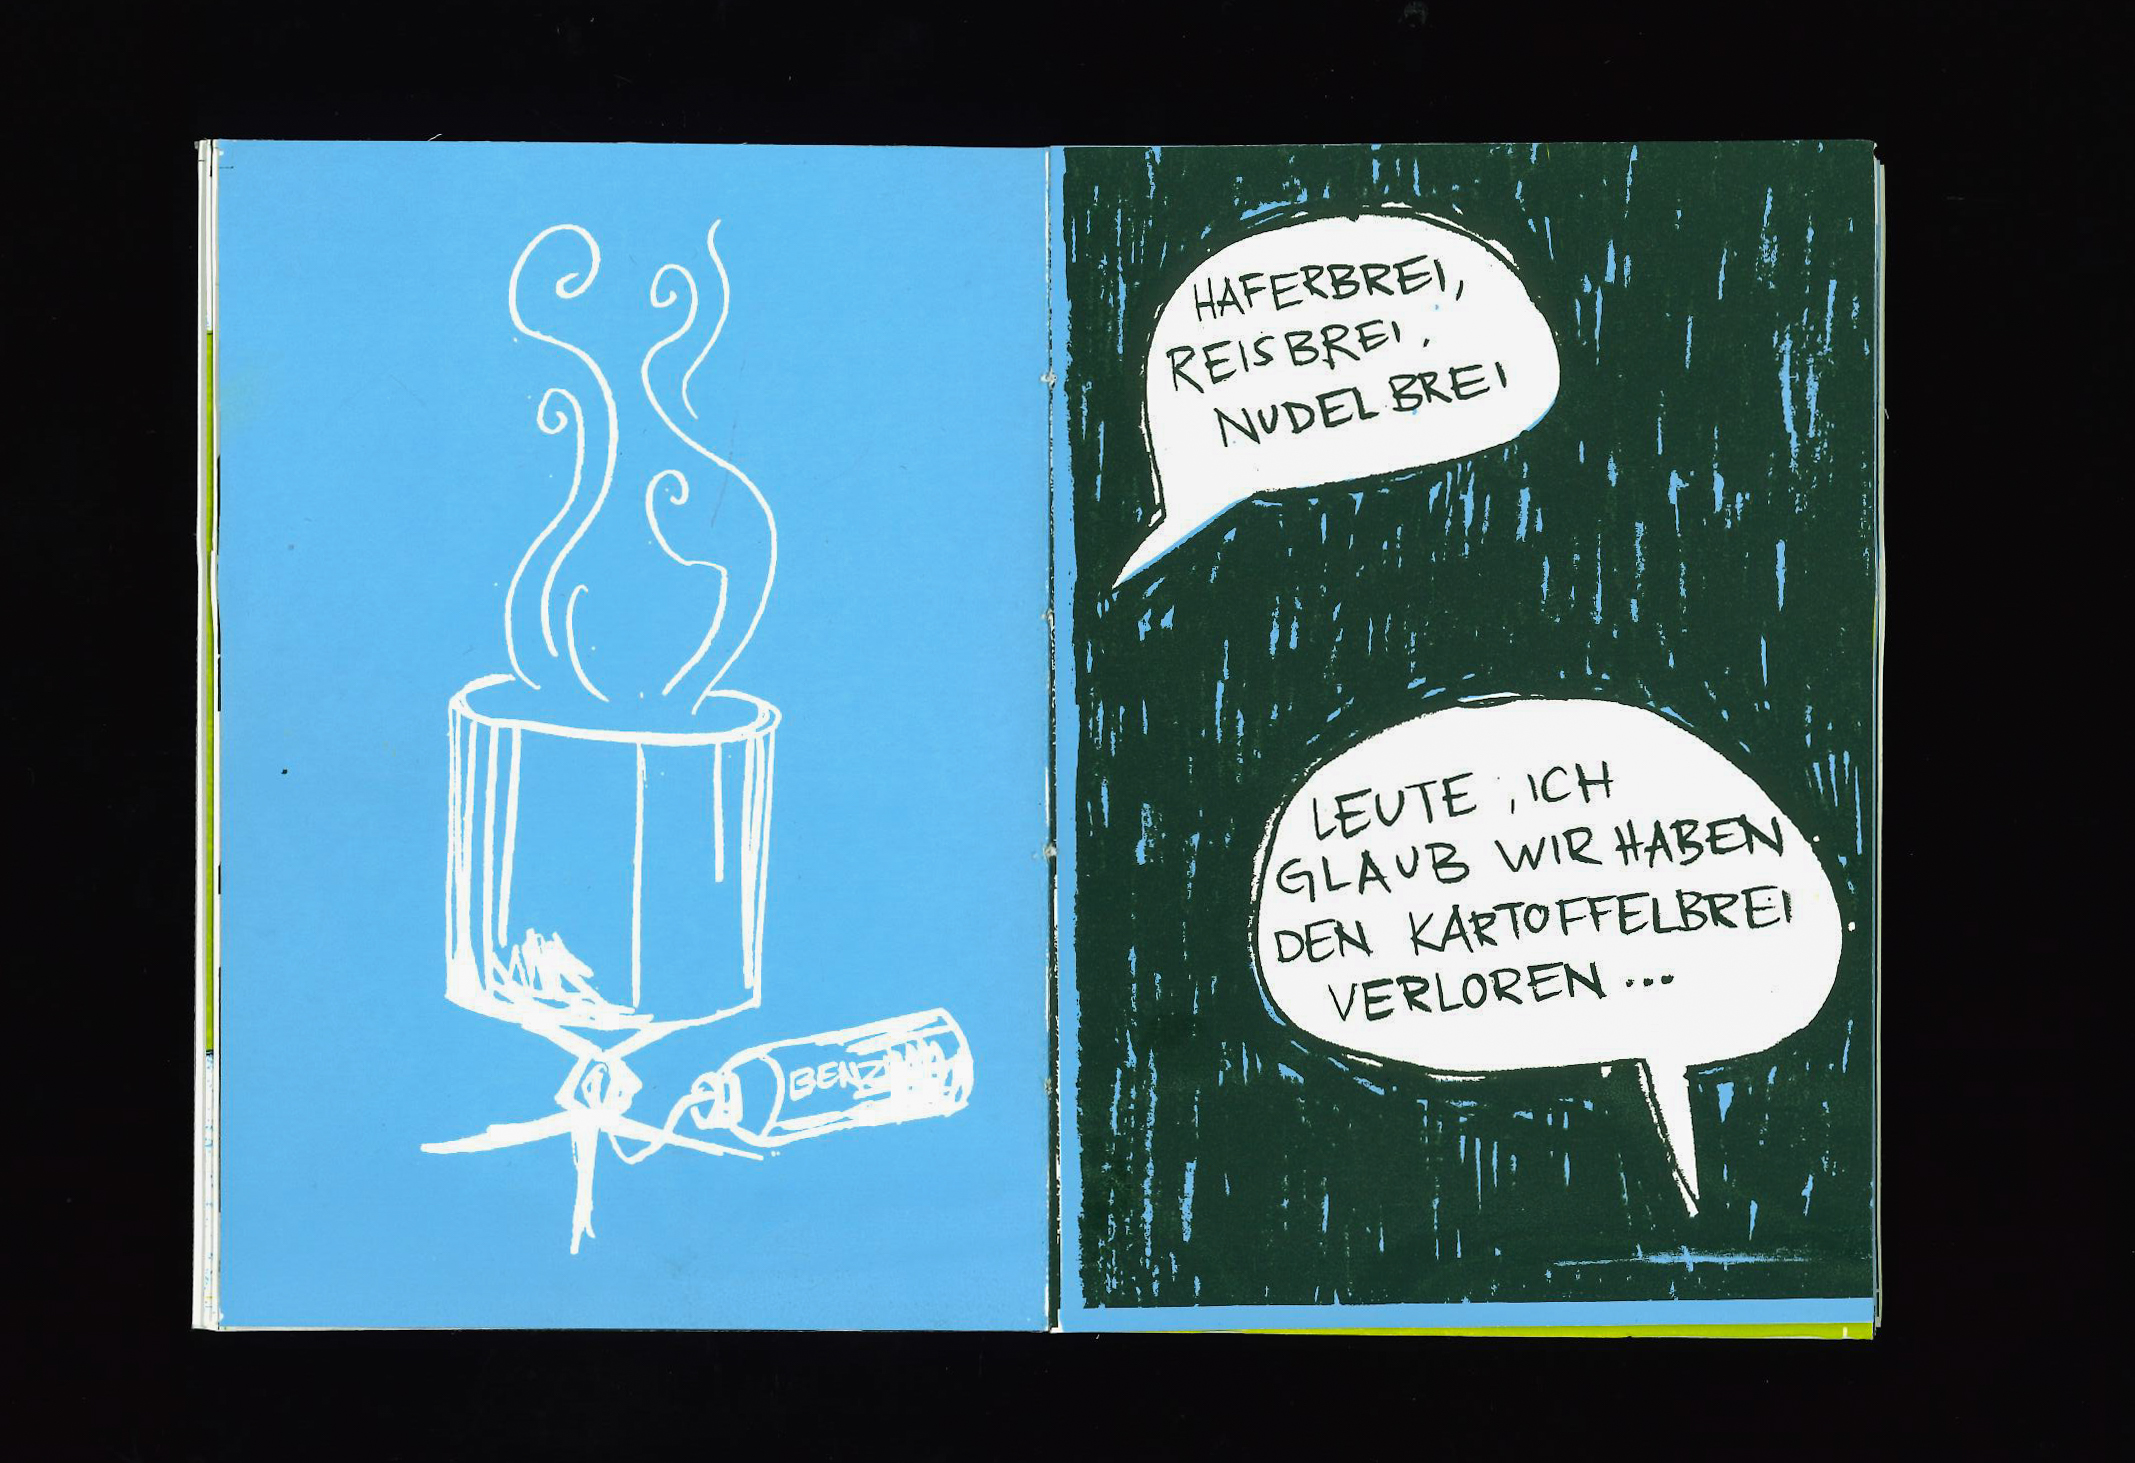 BENZIN
HAFERBREI,
REISBREI,
NUDELBREI
LEUTE, ICH
GLAUB WIR HABEN
DEN KARTOFFELBREI
VERLOREN...